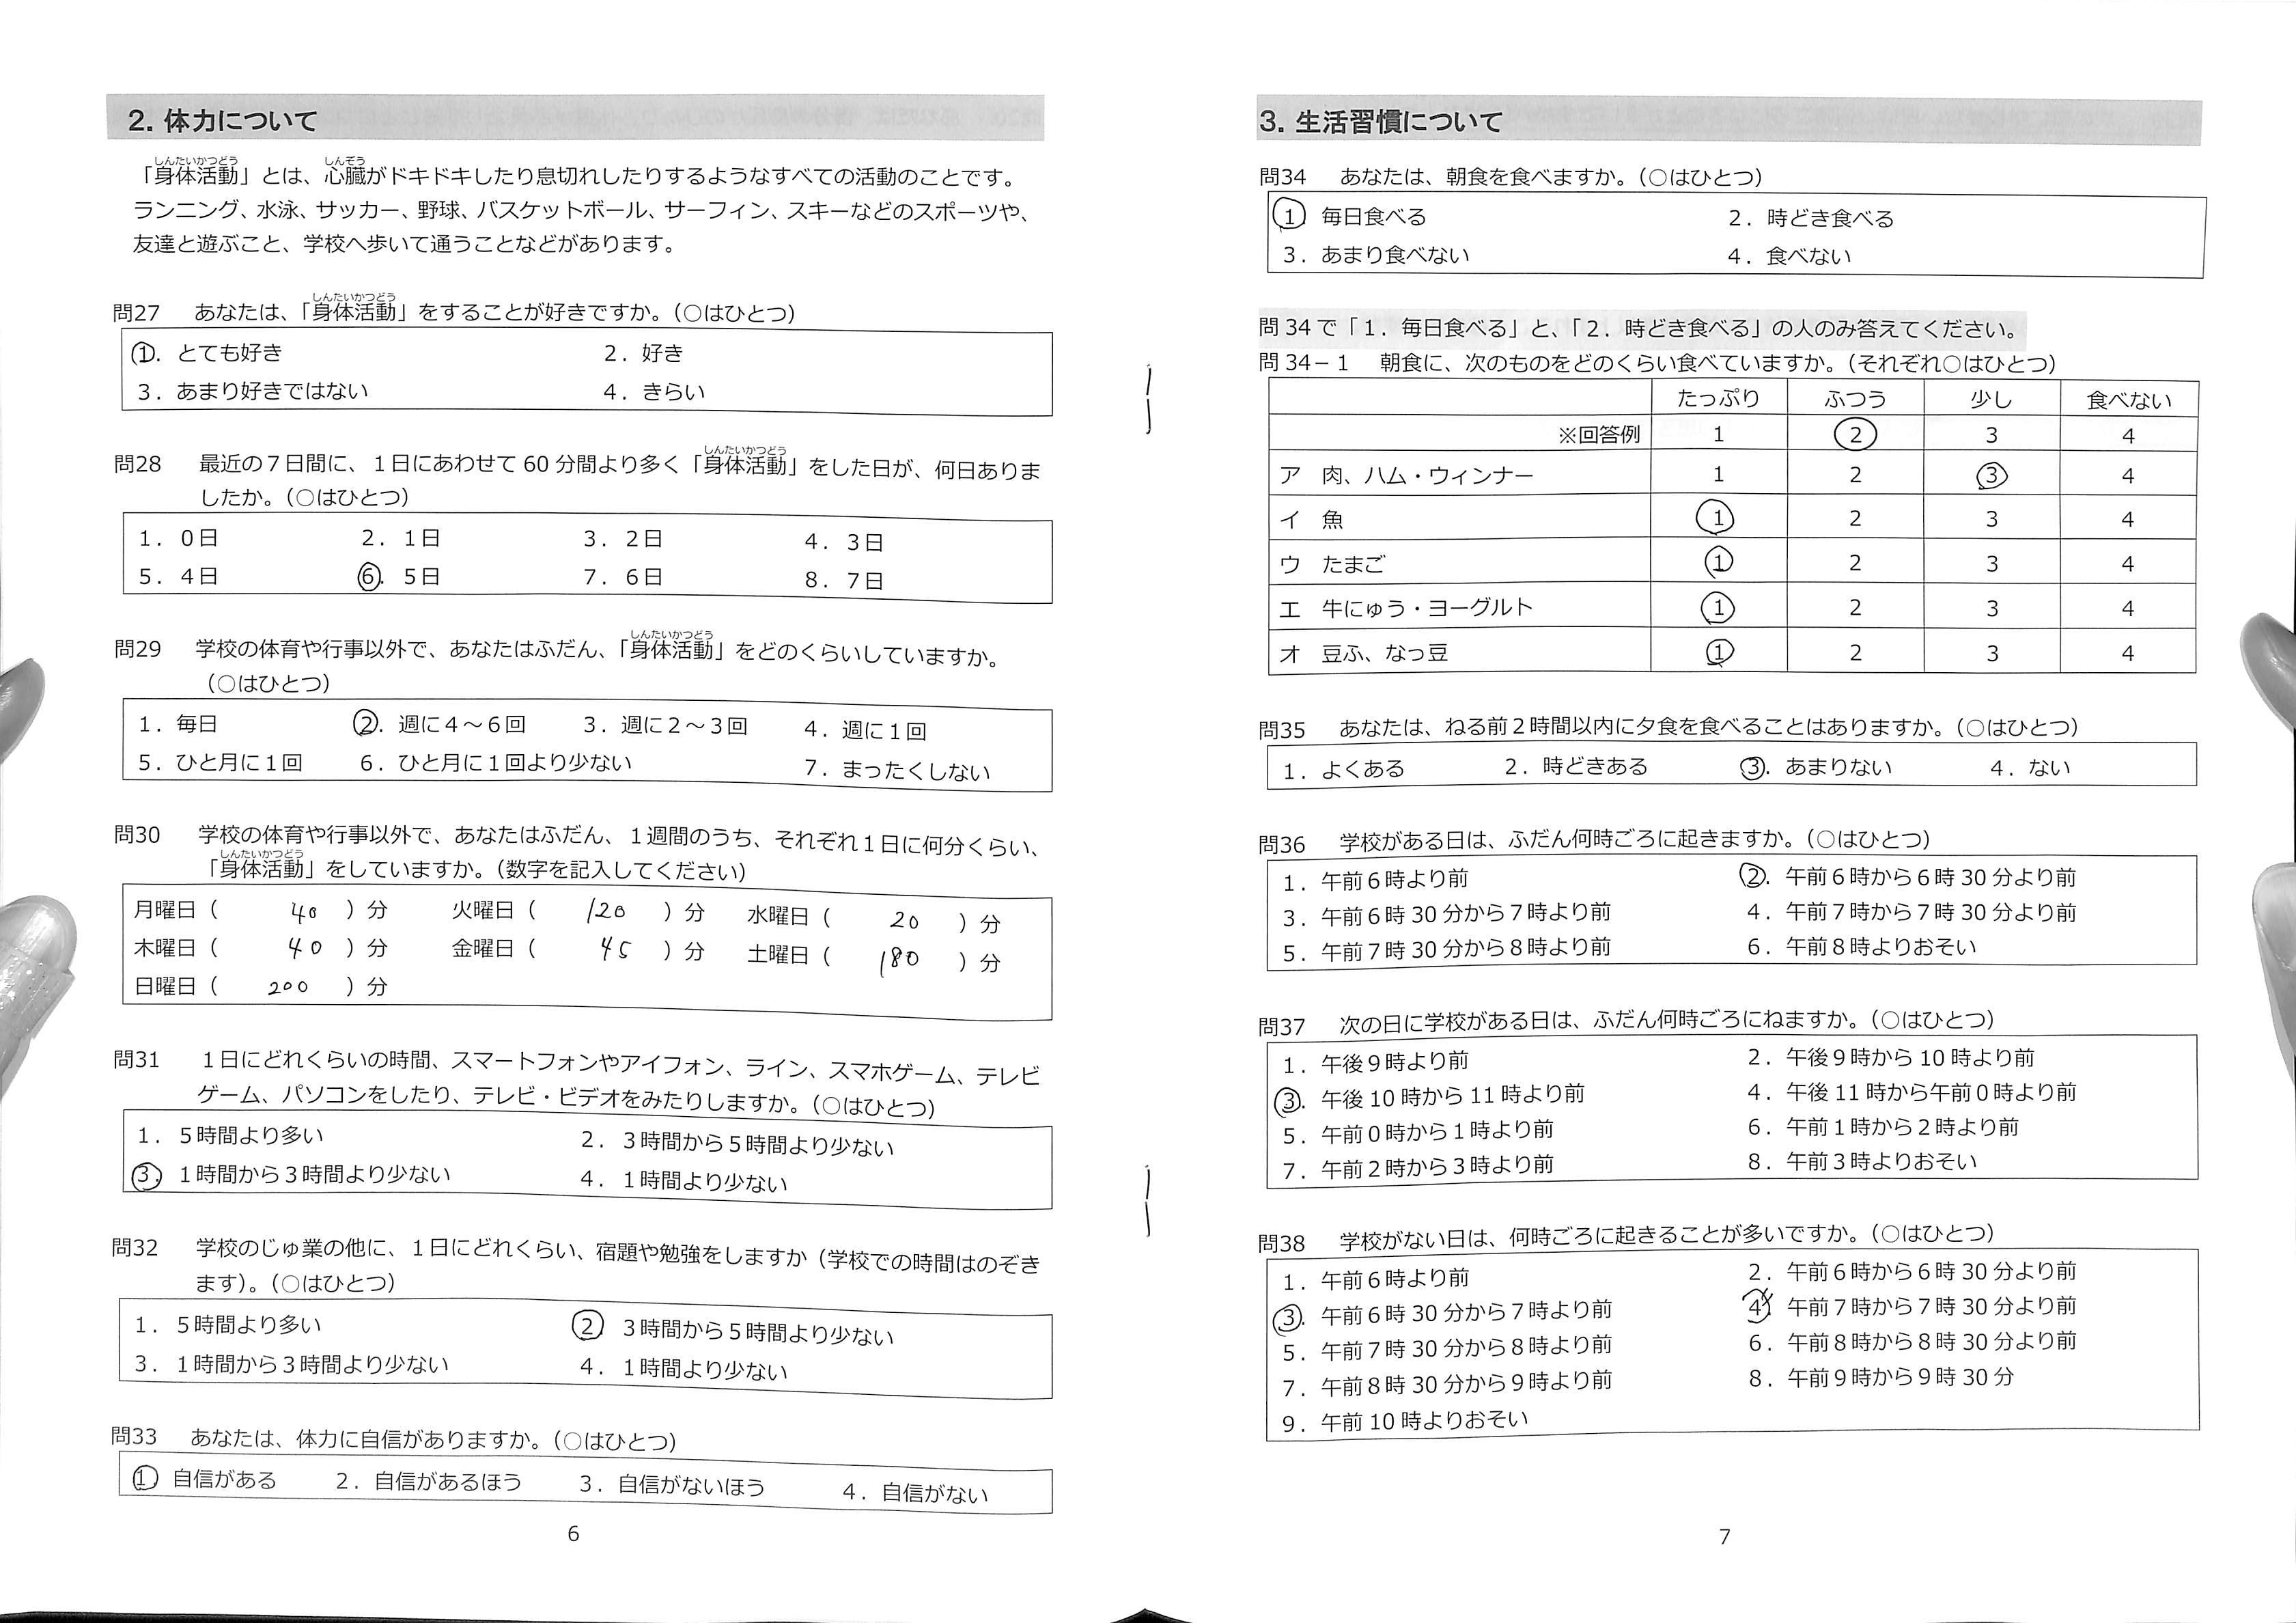 2. 体力について
「身体活動」とは、心臓がドキドキしたり息切れしたりするようなすべての活動のことです。
ランニング、水泳、サッカー、野球、バスケットボール、サーフィン、スキーなどのスポーツや、
友達と遊ぶこと、学校へ歩いて通うことなどがあります。
問27 あなたは、「身体活動」をすることが好きですか。（○はひとつ）
1. とても好き 2. 好き
3. あまり好きではない 4. きらい
問28 最近の7日間に、1日にあわせて 60 分間より多く「身体活動」をした日が、何日ありま
したか。（○はひとつ）
1. 0日 2. 1日 3. 2日 4. 3日
5. 4日 6. 5日 7. 6日 8. 7日
問29 学校の体育や行事以外で、あなたはふだん、「身体活動」をどのくらいしていますか。
（○はひとつ）
1. 毎日 2. 週に4～6回 3. 週に2～3回 4. 週に1回
5. ひと月に1回 6. ひと月に1回より少ない 7. まったくしない
問30 学校の体育や行事以外で、あなたはふだん、1週間のうち、それぞれ1日に何分くらい、
「身体活動」をしていますか。（数字を記入してください）
月曜日（ 40 ）分 火曜日（ 120 ）分 水曜日（ 20 ）分
木曜日（ 40 ）分 金曜日（ 45 ）分 土曜日（ 180 ）分
日曜日（ 200 ）分
問31 1日にどれくらいの時間、スマートフォンやアイフォン、ライン、スマホゲーム、テレビ
ゲーム、パソコンをしたり、テレビ・ビデオをみたりしますか。（○はひとつ）
1. 5時間より多い 2. 3時間から5時間より少ない
3. 1時間から3時間より少ない 4. 1時間より少ない
問32 学校のじゅ業の他に、1日にどれくらい、宿題や勉強をしますか（学校での時間はのぞき
ます）。（○はひとつ）
1. 5時間より多い 2 3時間から5時間より少ない
3. 1時間から3時間より少ない 4. 1時間より少ない
問33 あなたは、体力に自信がありますか。（○はひとつ）
1 自信がある 2. 自信があるほう 3. 自信がないほう 4. 自信がない
6
3. 生活習慣について
問34 あなたは、朝食を食べますか。（○はひとつ）
1. 毎日食べる 2. 時どき食べる
3. あまり食べない 4. 食べない
問 34 で「1. 毎日食べる」と、「2. 時どき食べる」の人のみ答えてください。
問 34－1 朝食に、次のものをどのくらい食べていますか。（それぞれ○はひとつ）
たっぷり ふつう 少し 食べない
※回答例 1 2 3 4
ア 肉、ハム・ウィンナー 1 2 3 4
イ 魚 1 2 3 4
ウ たまご 1 2 3 4
エ 牛にゅう・ヨーグルト 1 2 3 4
オ 豆ふ、なっ豆 1 2 3 4
問35 あなたは、ねる前2時間以内に夕食を食べることはありますか。（○はひとつ）
1. よくある 2. 時どきある 3. あまりない 4. ない
問36 学校がある日は、ふだん何時ごろに起きますか。（○はひとつ）
1. 午前6時より前 2. 午前6時から6時 30 分より前
3. 午前6時 30 分から7時より前 4. 午前7時から7時 30 分より前
5. 午前7時 30 分から8時より前 6. 午前8時よりおそい
問37 次の日に学校がある日は、ふだん何時ごろにねますか。（○はひとつ）
1. 午後9時より前 2. 午後9時から 10 時より前
3. 午後 10 時から 11 時より前 4. 午後 11 時から午前0時より前
5. 午前0時から1時より前 6. 午前1時から2時より前
7. 午前2時から3時より前 8. 午前3時よりおそい
問38 学校がない日は、何時ごろに起きることが多いですか。（○はひとつ）
1. 午前6時より前 2. 午前6時から6時 30 分より前
3. 午前6時 30 分から7時より前 4 午前7時から7時 30 分より前
5. 午前7時 30 分から8時より前 6. 午前8時から8時 30 分より前
7. 午前8時 30 分から9時より前 8. 午前9時から9時 30 分
9. 午前 10 時よりおそい
7